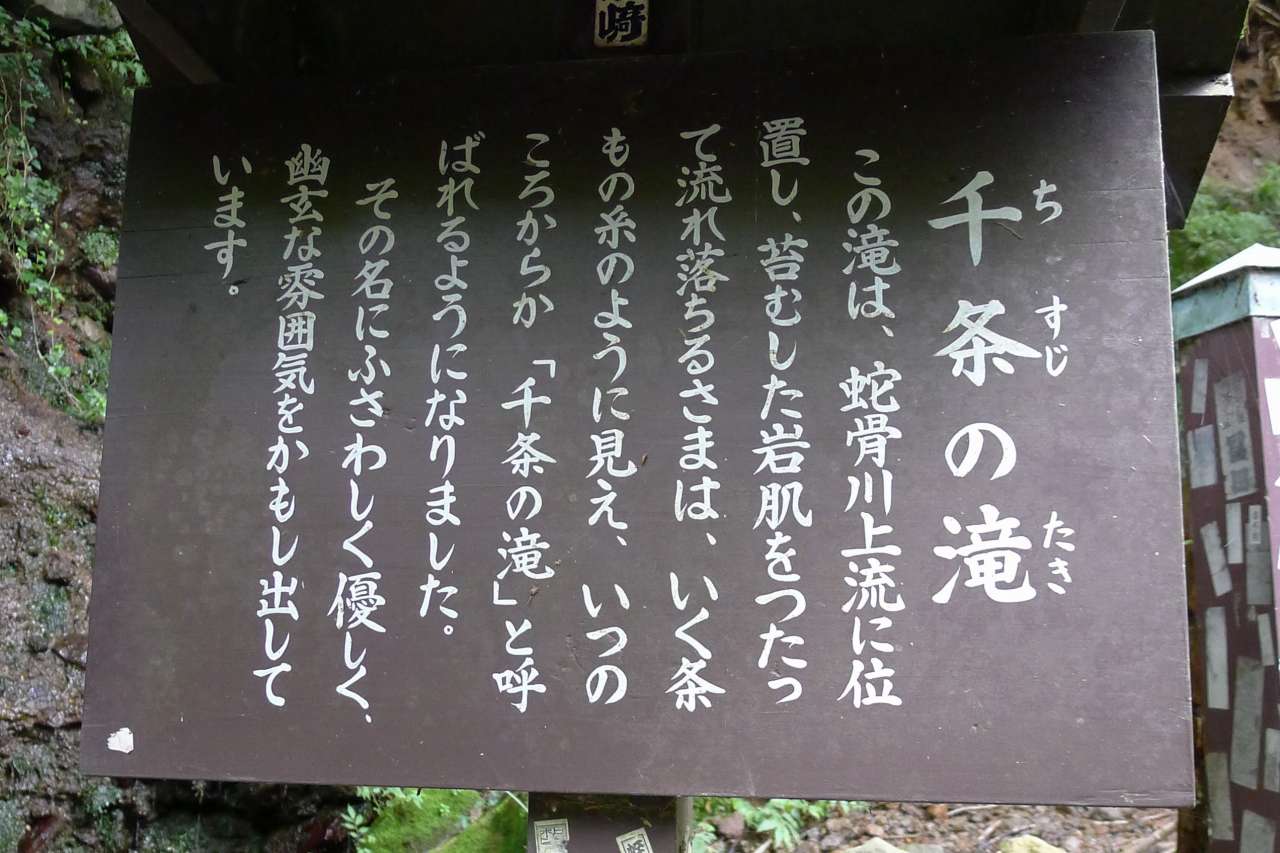 千条の滝
ちすじ たき
この滝は、蛇骨川上流に位
置し、苔むした岩肌をつたっ
て流れ落ちるさまは、いく条
もの糸のように見え、いつの
ころからか「千条の滝」と呼
ばれるようになりました。
その名にふさわしく優しく、
幽玄な雰囲気をかもし出して
います。